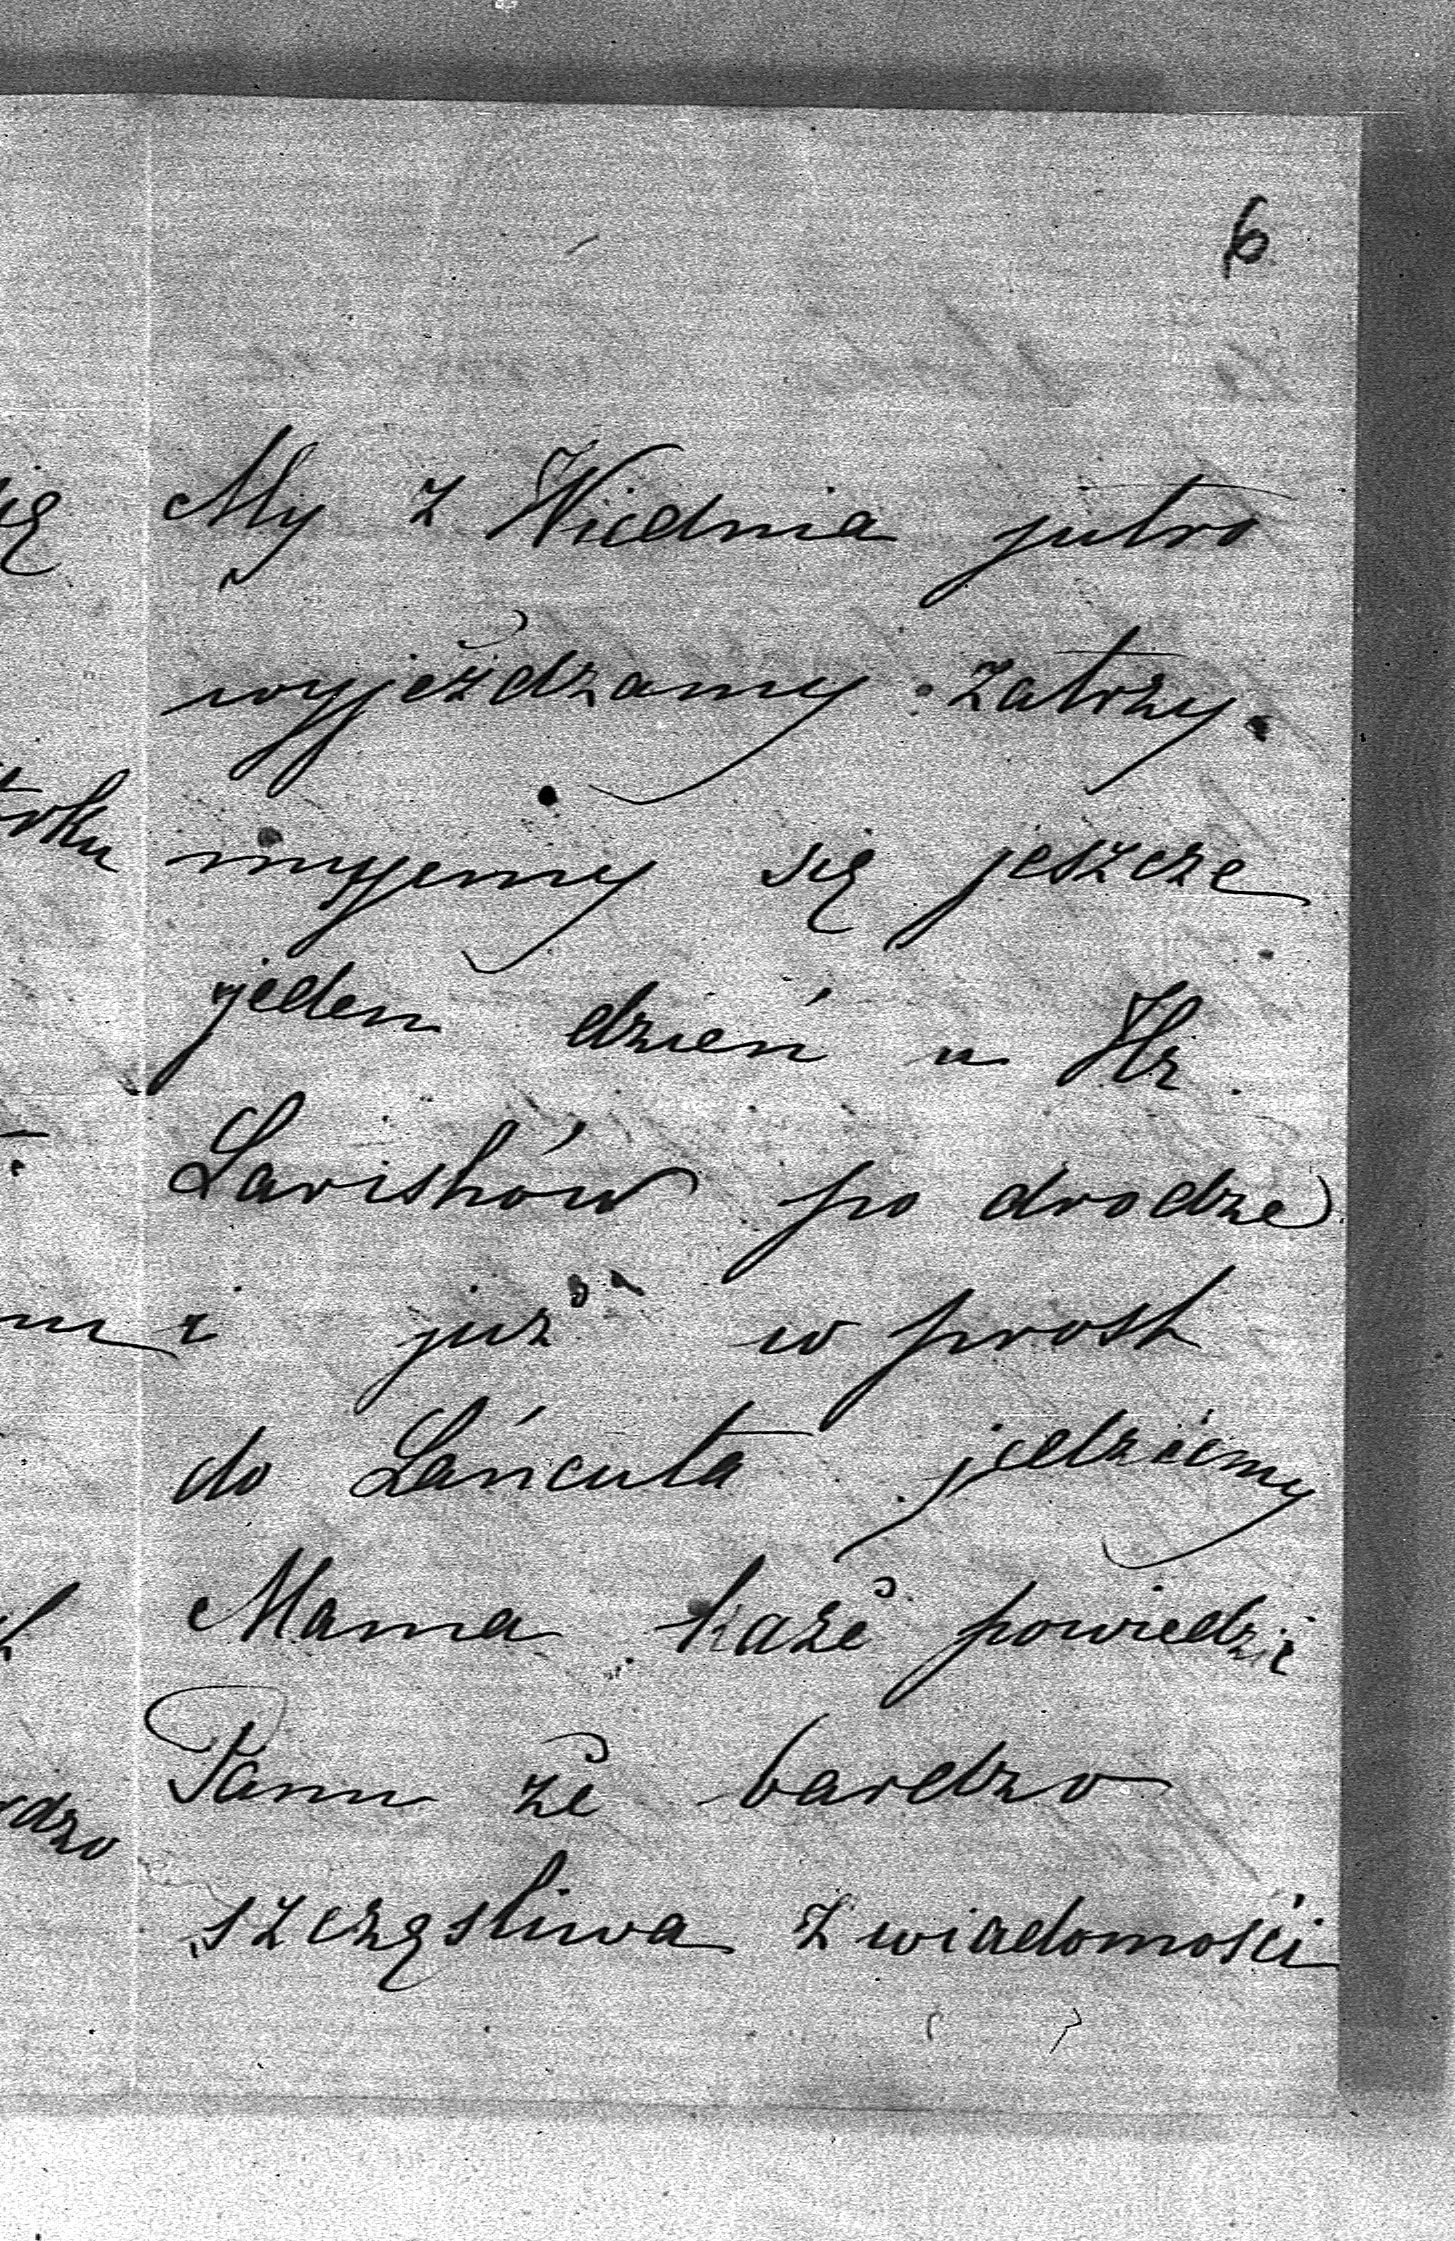 6
My z Wiednia jutro
wyjeżdzamy: zatrzy-
mujemy się jeszcze
jeden dzień u Hr.
Larishów po drodze
i już w prost
do Łańcuta jedziemy
Mama każe powiedzić
Panu że bardzo
szczęsliwa z wiadomości